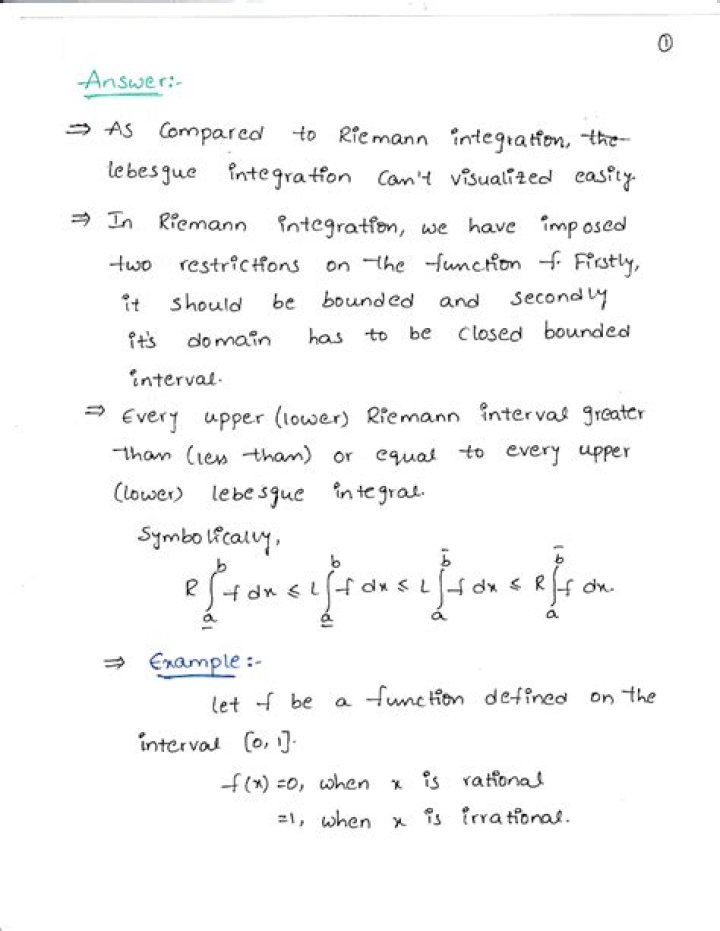 ①
Answer:-
⇒ As Compared to Riemann integration, the
lebesgue integration Can't visualized easily.
⇒ In Riemann integration, we have imposed
two restrictions on the function f. Firstly,
it should be bounded and secondly
it's domain has to be closed bounded
interval.
⇒ Every upper (lower) Riemann interval greater
than (less than) or equal to every upper
(lower) lebesgue integral.
Symbolically,
R∫_a̲^b f dx ≤ L∫_a̲^b f dx ≤ L∫_a^b̄ f dx ≤ R∫_a^b̄ f dx.
⇒ Example:-
let f be a function defined on the
interval [0, 1].
f(x) =0, when x is rational
=1, when x is irrational.